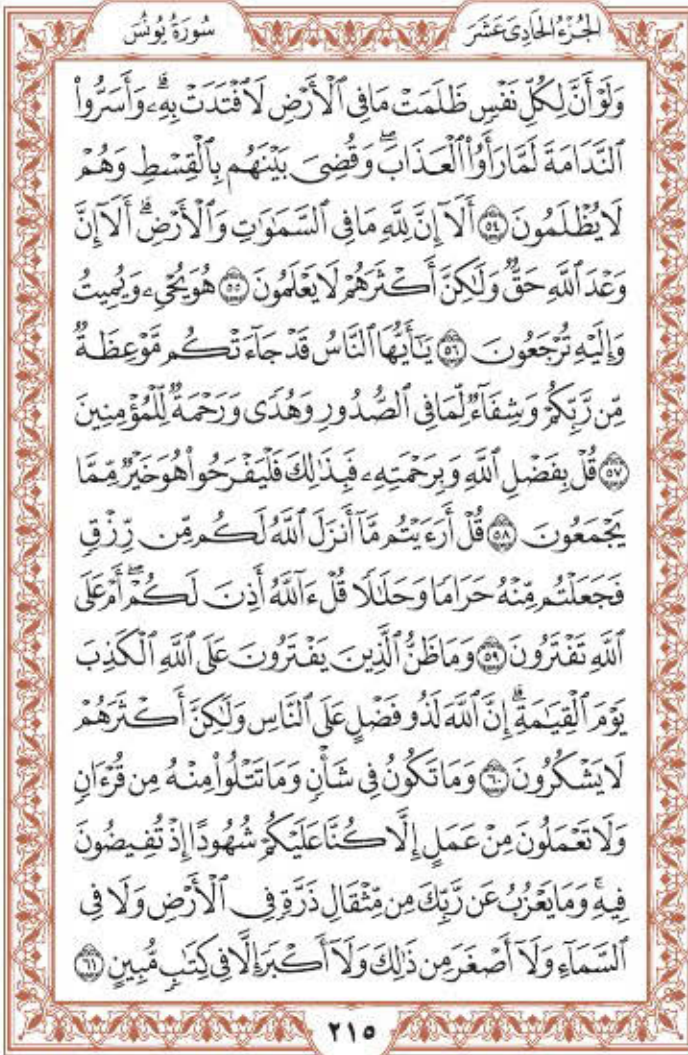 الجُزْءُ الحَادِىَ عَشَرَ
سُورَةُ يُونُسَ
وَلَوْ أَنَّ لِكُلِّ نَفْسٍ ظَلَمَتْ مَا فِي ٱلْأَرْضِ لَٱفْتَدَتْ بِهِۦۗ وَأَسَرُّوا۟
ٱلنَّدَامَةَ لَمَّا رَأَوُا۟ ٱلْعَذَابَۖ وَقُضِىَ بَيْنَهُم بِٱلْقِسْطِ وَهُمْ
لَا يُظْلَمُونَ ۝٥٤ أَلَآ إِنَّ لِلَّهِ مَا فِي ٱلسَّمَٰوَٰتِ وَٱلْأَرْضِۗ أَلَآ إِنَّ
وَعْدَ ٱللَّهِ حَقٌّ وَلَٰكِنَّ أَكْثَرَهُمْ لَا يَعْلَمُونَ ۝٥٥ هُوَ يُحْىِۦ وَيُمِيتُ
وَإِلَيْهِ تُرْجَعُونَ ۝٥٦ يَٰٓأَيُّهَا ٱلنَّاسُ قَدْ جَآءَتْكُم مَّوْعِظَةٌ
مِّن رَّبِّكُمْ وَشِفَآءٌ لِّمَا فِي ٱلصُّدُورِ وَهُدًى وَرَحْمَةٌ لِّلْمُؤْمِنِينَ
۝٥٧ قُلْ بِفَضْلِ ٱللَّهِ وَبِرَحْمَتِهِۦ فَبِذَٰلِكَ فَلْيَفْرَحُوا۟ هُوَ خَيْرٌ مِّمَّا
يَجْمَعُونَ ۝٥٨ قُلْ أَرَءَيْتُم مَّآ أَنزَلَ ٱللَّهُ لَكُم مِّن رِّزْقٍ
فَجَعَلْتُم مِّنْهُ حَرَامًا وَحَلَٰلًا قُلْ ءَآللَّهُ أَذِنَ لَكُمْۖ أَمْ عَلَى
ٱللَّهِ تَفْتَرُونَ ۝٥٩ وَمَا ظَنُّ ٱلَّذِينَ يَفْتَرُونَ عَلَى ٱللَّهِ ٱلْكَذِبَ
يَوْمَ ٱلْقِيَٰمَةِۗ إِنَّ ٱللَّهَ لَذُو فَضْلٍ عَلَى ٱلنَّاسِ وَلَٰكِنَّ أَكْثَرَهُمْ
لَا يَشْكُرُونَ ۝٦٠ وَمَا تَكُونُ فِي شَأْنٍ وَمَا تَتْلُوا۟ مِنْهُ مِن قُرْءَانٍ
وَلَا تَعْمَلُونَ مِنْ عَمَلٍ إِلَّا كُنَّا عَلَيْكُمْ شُهُودًا إِذْ تُفِيضُونَ
فِيهِۚ وَمَا يَعْزُبُ عَن رَّبِّكَ مِن مِّثْقَالِ ذَرَّةٍ فِي ٱلْأَرْضِ وَلَا فِي
ٱلسَّمَآءِ وَلَآ أَصْغَرَ مِن ذَٰلِكَ وَلَآ أَكْبَرَ إِلَّا فِي كِتَٰبٍ مُّبِينٍ ۝٦١
٢١٥